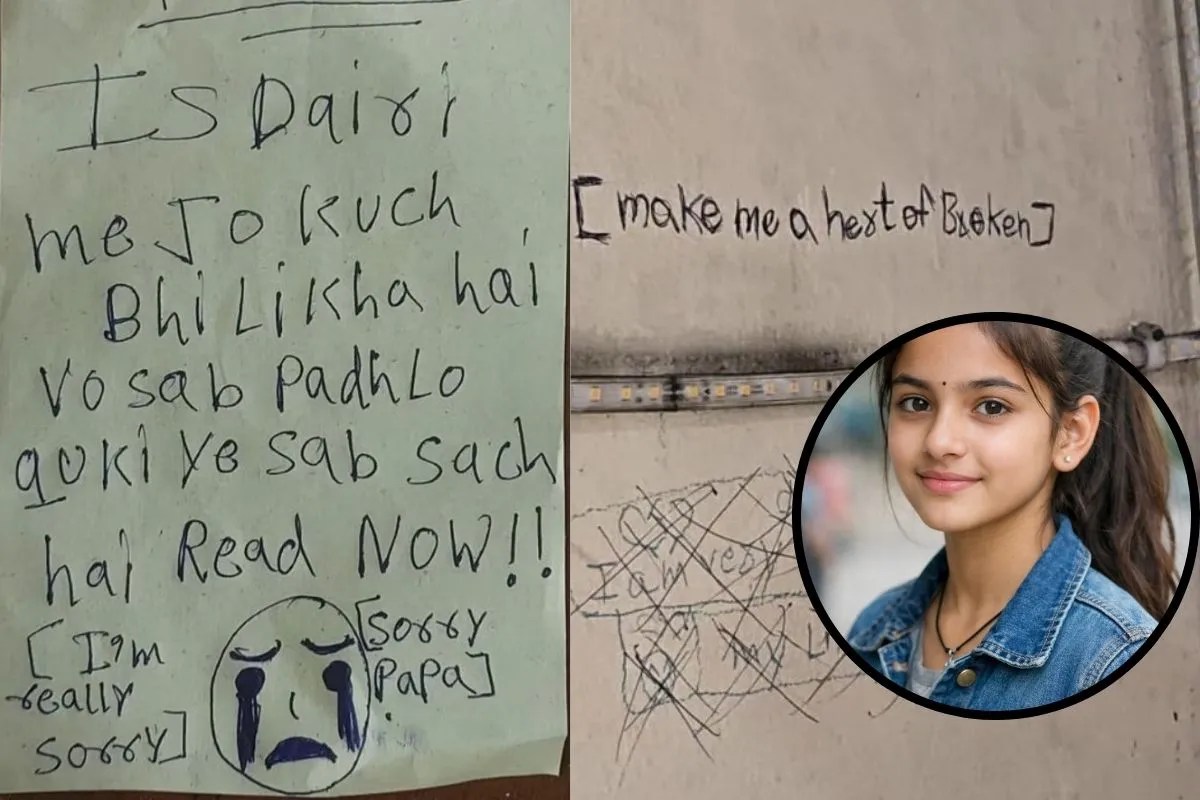 Is Dairi
me Jo kuch
Bhi Likha hai
vo sab Padh Lo
quki ye sab sach
hai Read NOW!!
[I'm
really
sorry]
[sorry
PaPa]
[make me a hert of Broken]
I am